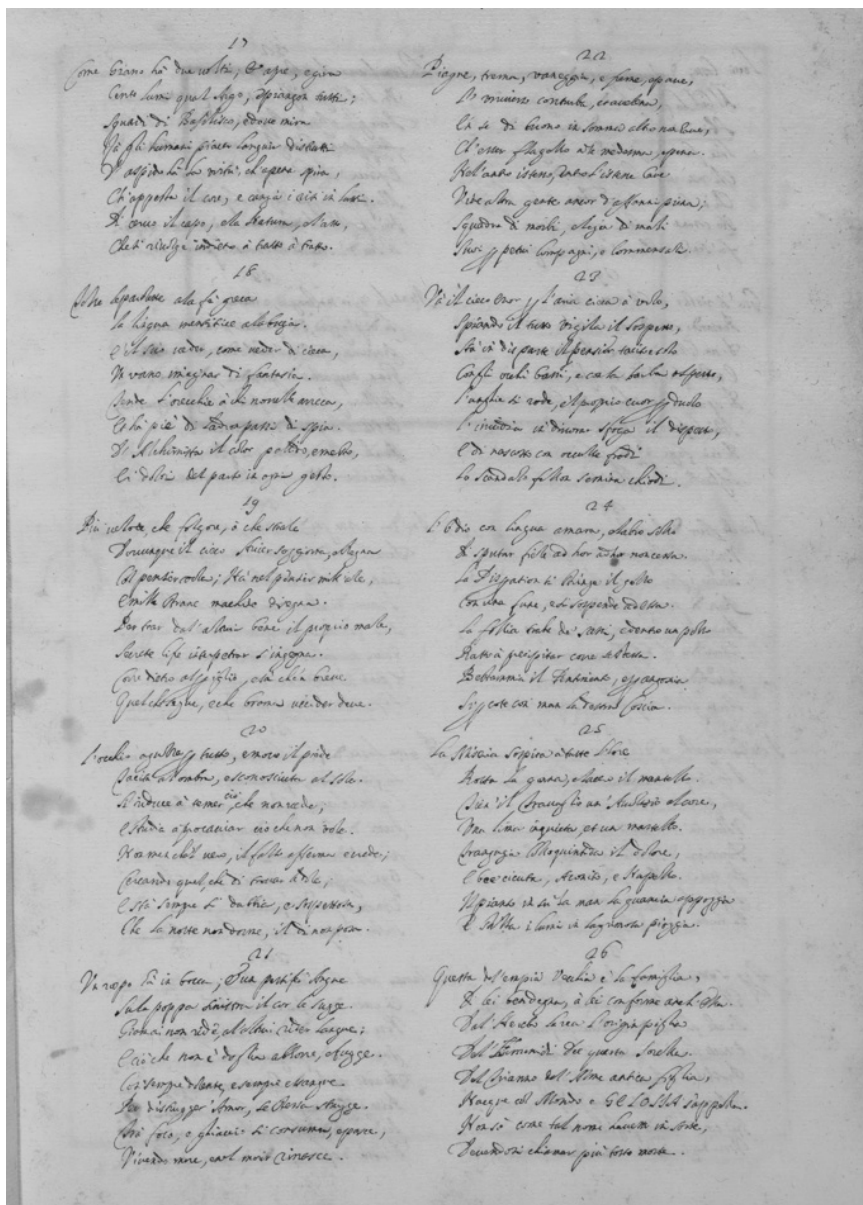 17
Come Giano hà due volti, et apre, e gira
Cento lumi qual Argo, e piangon tutti;
Sguardi di Basilisco, e dove mira
Fà gli humani piacer languir distrutti
D'aspido hà la virtù, ch'opera spira,
Ch'appesta il core, e cangia i
Di cervo il capo, e la statura, e l'atto,
Che si rivolge indietro à tratto à tratto.
18
la fè greca
la lingua mentitrice a la bugia.
E il suo veder, come veder di cieca,
Un vano imaginar di fantasia.
l'orecchie à chi novelle arreca,
Et hà piè di ladro, e passi di spia.
D'Alchimista il color pallido, e mesto,
E i dolor del parto in ogni gesto.
19
Più veloce, che folgore, ò che strale
Dovunque il cieco Arcier soggiorna, ò regna
Col pensier vola; et hà nel pensier mill'ale,
E mille strane machine disegna.
Per trar dal'altrui bene il proprio male,
Secrete cife interpretar s'ingegna.
Corre dietro al peggio, e in chiaro breve
Quel che segue, e che brama uccider deve.
20
L'occhio aguzza per tutto, e move il piede
Tacita al'ombra, e sconosciuta al sole.
S'induce à temer ciò, che non vede;
E studia à procacciar ciò che non vole.
Non men che'l vero, il falso afferma e crede;
Cercando quel, che di trovar si dole;
E stà sempre sì dubbia, e sospettosa,
Che la notte non dorme, il dì non posa.
21
Un rospo hà in bocca; e una pestifer'angue
Su la poppa sinistra il cor le sugge.
Giamai non ride, al altrui rider langue;
E ciò che non è doglia abhorre, e fugge.
Così sempre dolente, e sempre essangue
Per distrugger Amor, se stessa strugge.
Trà foco, e ghiaccio si consuma, e pasce,
Vivendo more, e nel morir rinasce.
22
Piagne, trema, vaneggia, e teme, e pave,
L'universo conturba, e avvelena,
Nè se di buono in somma altro non have,
Ch'esser flagello à se medesma, e pena.
Nel'antro istesso, entro l'istesse cave
Vive altra gente ancor d'affanni piena;
Squadra di morbi, e legion di mali
Suoi perpetui compagni, e commensali
23
Và il cieco Error per l'aria cieca à volo,
Spiando il tutto vigila il Sospetto,
Stà in disparte il pensier tacito e solo
Con gli occhi bassi, e con la barba al petto,
L'unghie si rode, e'l proprio cuor per duolo
L'invidia, e di divora sforza il dispetto,
E di nascosto con occulte frodi
Lo Scandalo fellon semina chiodi.
24
L'Odio con lingua amara, e labro
A sputar fiele ad hor ad hor non cessa.
La Disperation si stringe il gollo
Con una fune, e si sospende ad essa.
La follia trahe de' sassi, e dentro un pozzo
Ratto à precipitar corre se stessa.
Bestemmia il Pentimento, e per angoscia
Si percote con man la destra coscia.
25
La Miseria sospira à tutte l'hore
Rotta la gonna, e lacero il mantello.
Dà il Travaglio un' Avoltoio al core,
Una lima inquieta, et un martello.
Trangugia Coloquintida il dolore,
E bee cicuta, Aconito, e Nappello.
Il pianto in sù la man la guancia appoggia
E stilla i lumi in lagrimosa pioggia.
26
Questa del'empia Vecchia è la famiglia,
A lei ben degna, à lei conforme anch'ella.
Dal' Herebo la rea l'origin piglia
Del'Eumenidi Dee quarta sorella.
Del Tiranno del'Alme antica figlia,
Nacque col Mondo e GELOSIA s'appella.
Non sò come tal nome havesse in sorte,
Devendosi chiamar più tosto morte.